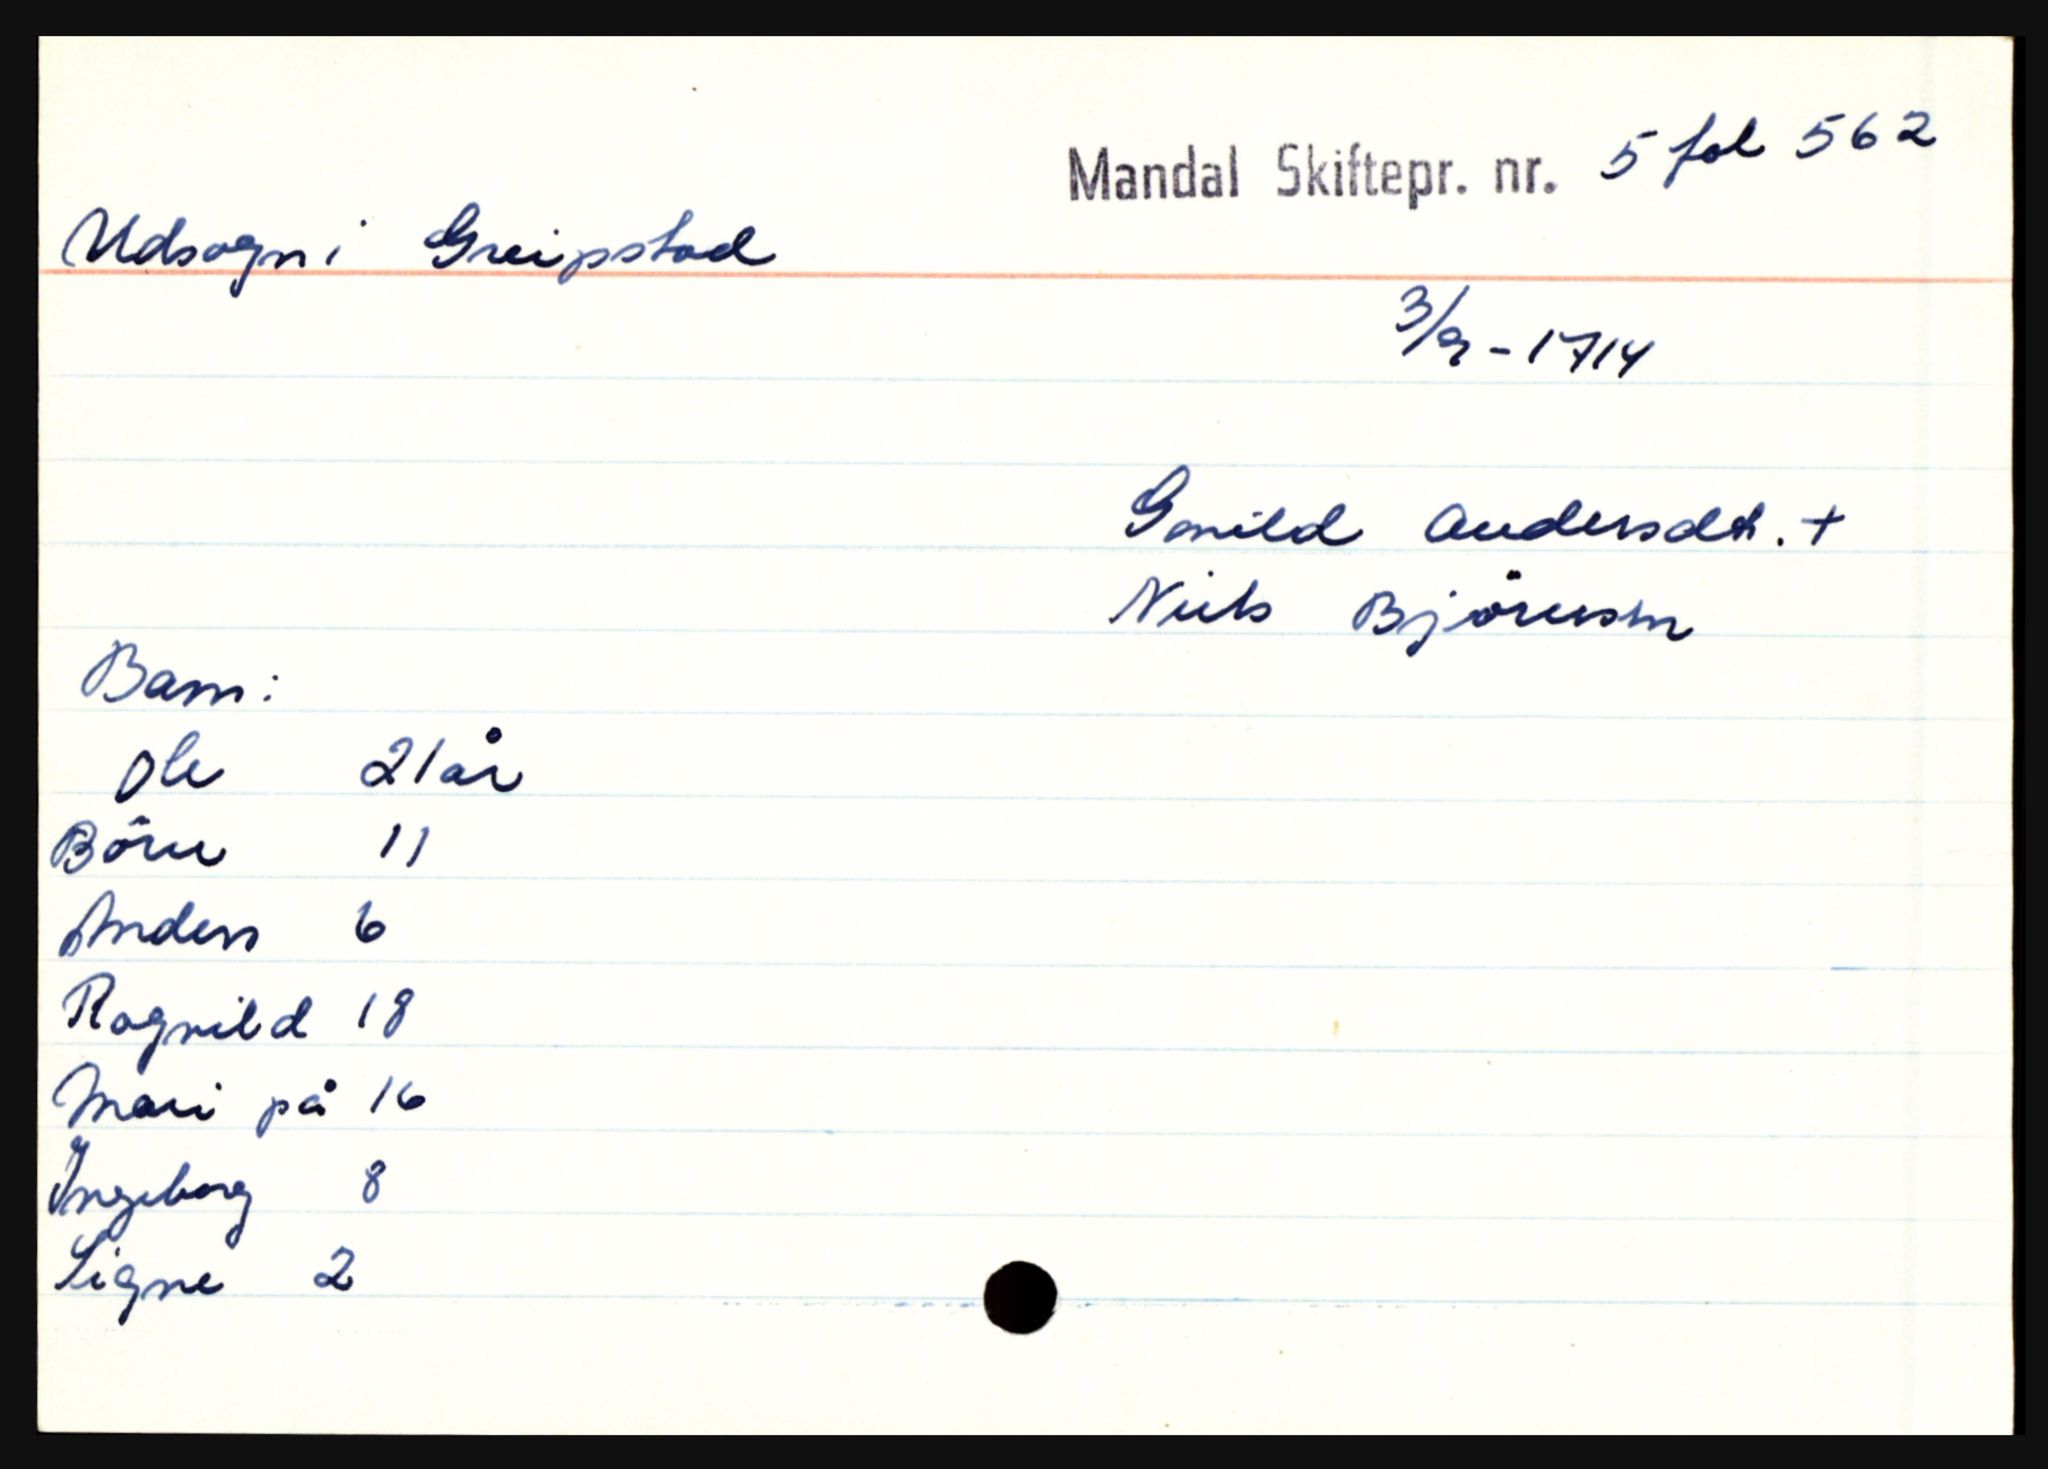 Mandal Skiftepr. nr. 5 fol 562
Udsogn i Greipstad
3/9-1714
Gonild Andersdt. +
Niels Björnsen
Barn:
Ole 21 år
Börn 11
Anders 6
Ragnild 18
Mari på 16
Ingeborg 8
Signe 2